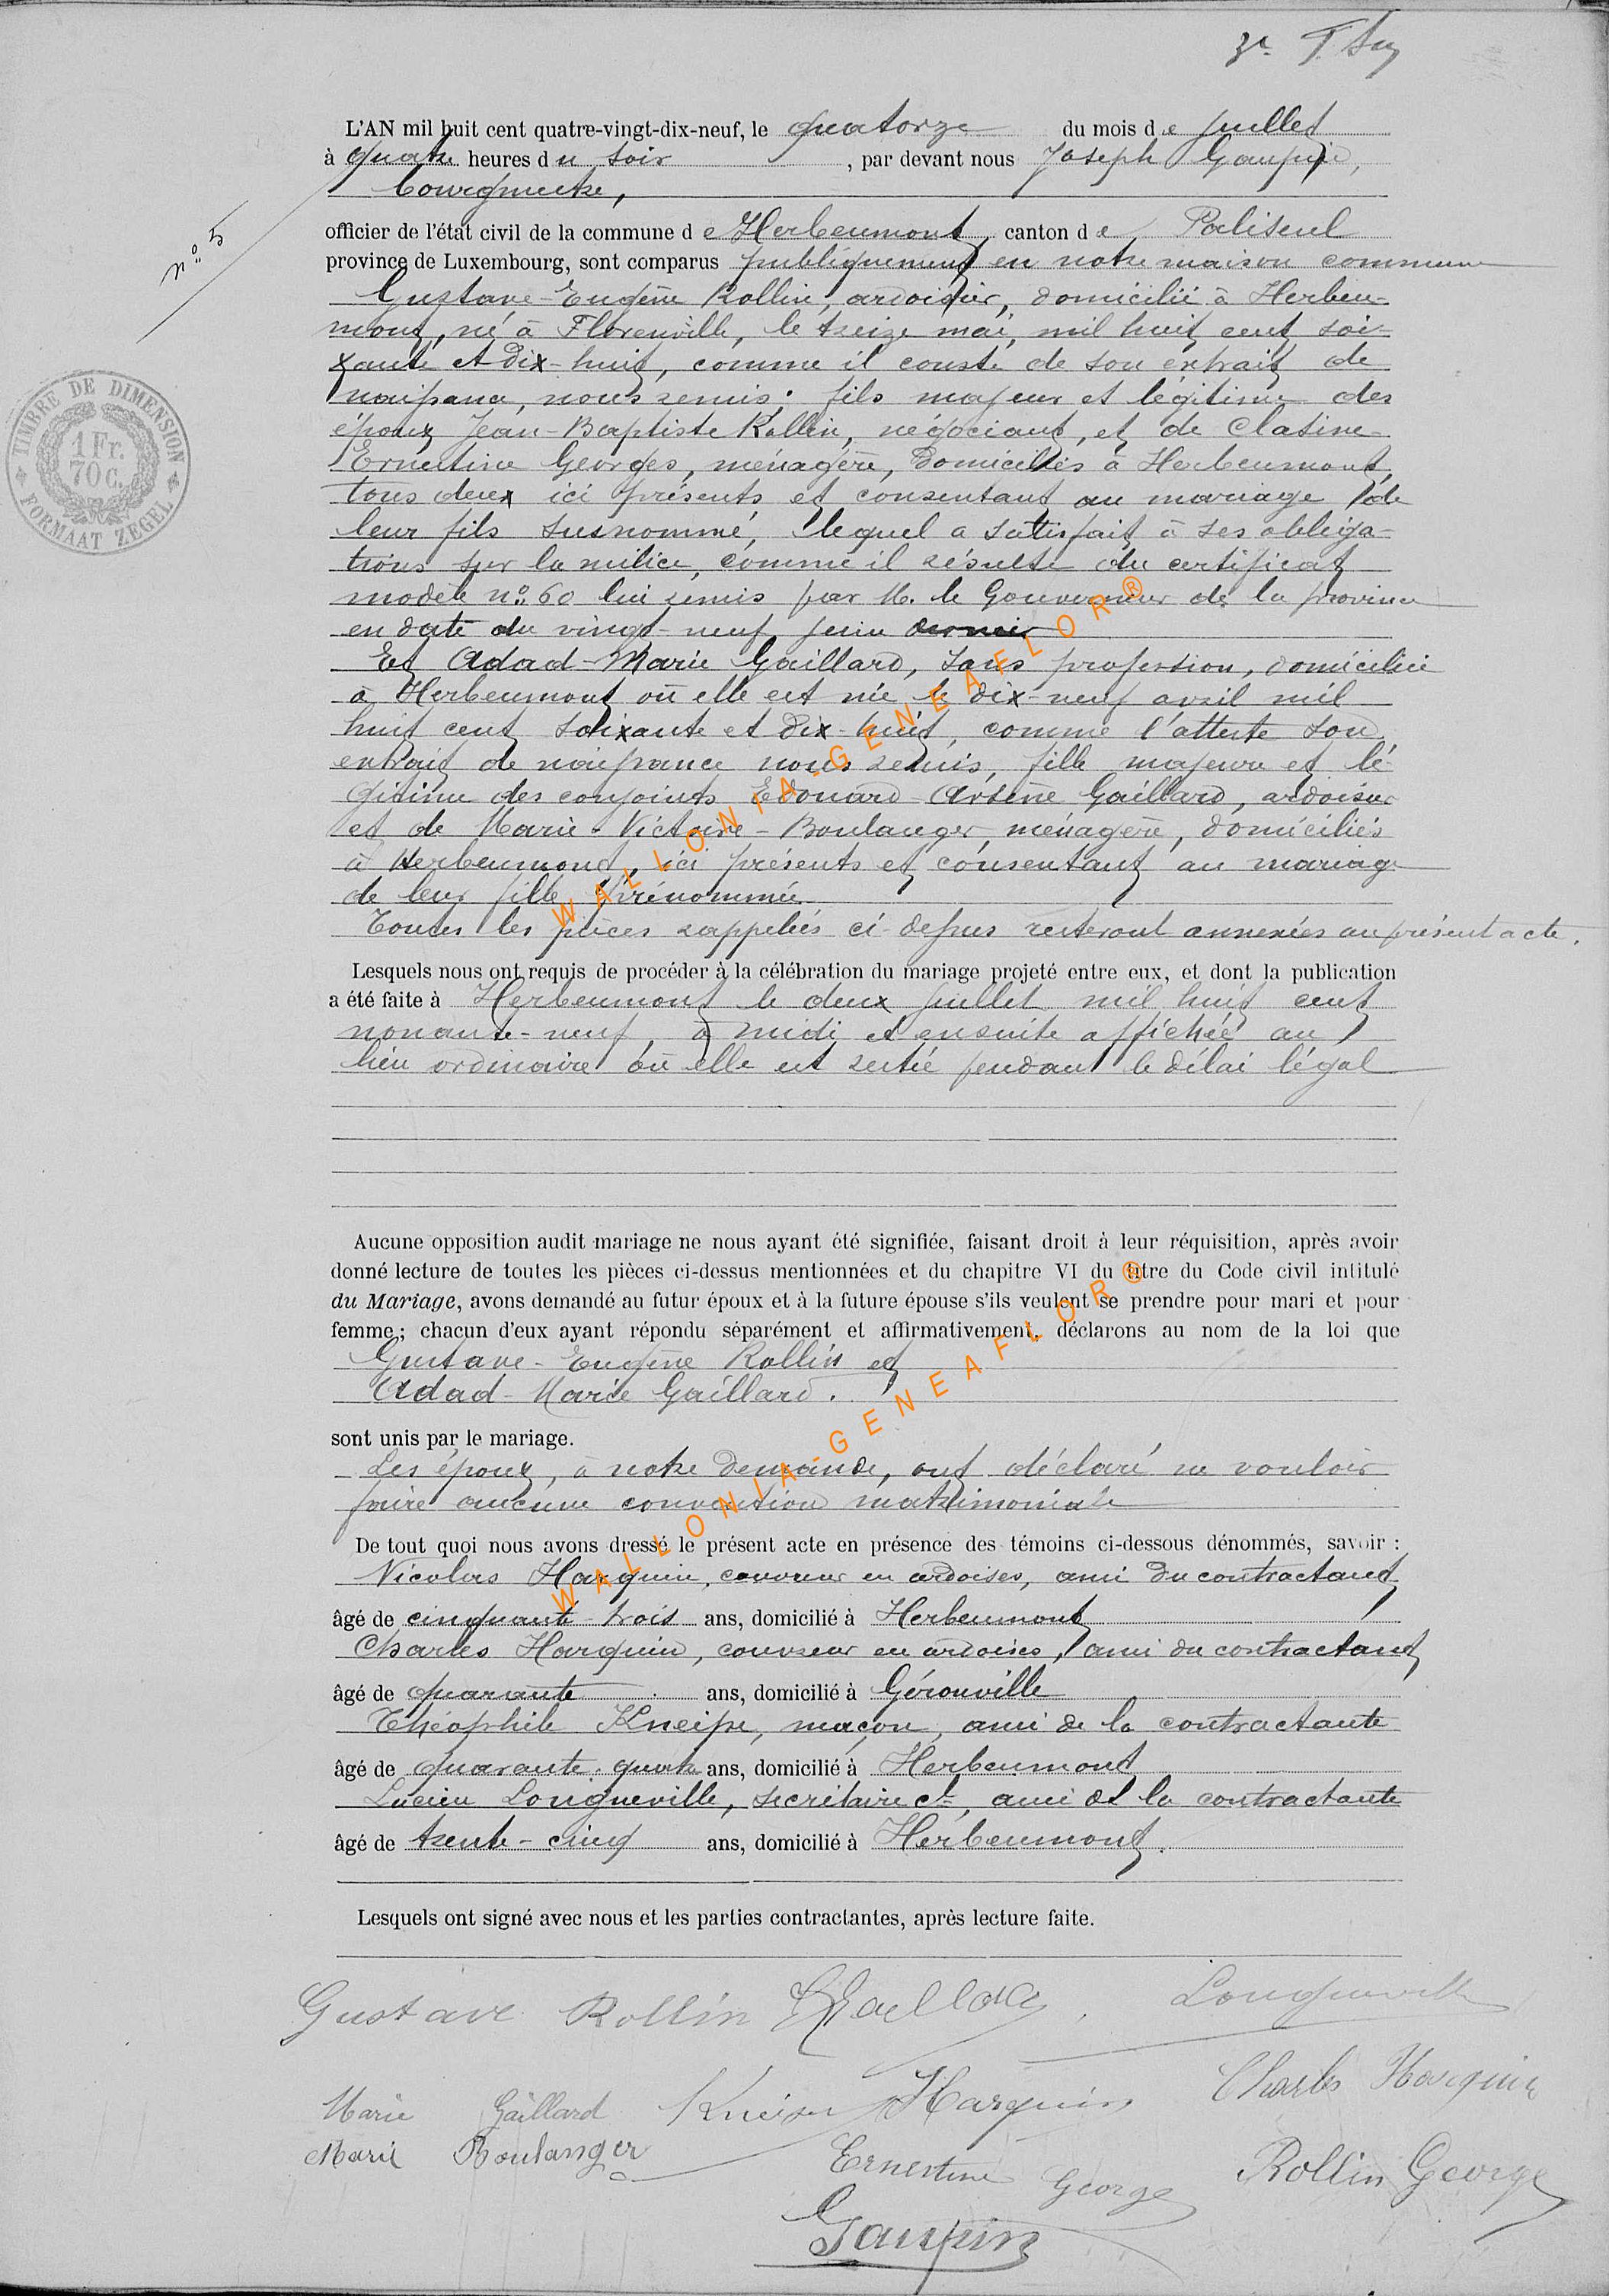 L'AN mil huit cent quatre-vingt-dix-neuf, le quatorze du mois de Juillet
à quatre heures du soir, par devant nous Joseph Gaupin,
bourgmestre,
n° 5
officier de l'état civil de la commune de Herbeumont canton de Paliseul
province de Luxembourg, sont comparus publiquement en notre maison commune
Gustave-Eugène Rollin, ardoisier, domicilié à Herbeu-
mont, né à Florenville, le treize mai, mil huit cent soi-
xante et dix-huit, comme il conste de son extrait de
naissance, nous remis; fils majeur et légitime des
époux Jean-Baptiste Rollin, négociant, et de Clatine-
Ernestine Georges, ménagère, domiciliés à Herbeumont,
tous deux ici présents et consentant au mariage de
leur fils susnommé, lequel a satisfait à ses obliga-
tions sur la milice, comme il résulte du certificat
modèle n° 60 lui remis par M. le Gouverneur de la province
en date du vingt-neuf juin dernier
Et Adad-Marie Gaillard, sans profession, domiciliée
à Herbeumont où elle est née le dix-neuf avril mil
huit cent soixante et dix-huit, comme l'atteste son
extrait de naissance nous remis, fille majeure et lé-
gitime des conjoints Edouard-Arsène Gaillard, ardoisier
et de Marie-Victoire-Boulanger, ménagère, domiciliés
à Herbeumont, ici présents et consentant au mariage
de leur fille prénommée
Toutes les pièces rappelées ci-dessus resteront annexées au présent acte.
Lesquels nous ont requis de procéder à la célébration du mariage projeté entre eux, et dont la publication
a été faite à Herbeumont le deux juillet mil huit cent
nonante-neuf, à midi et ensuite affichée au
lieu ordinaire où elle est restée pendant le délai légal
TIMBRE DE DIMENSION
1 Fr.
70 C.
FORMAAT ZEGEL
Aucune opposition audit mariage ne nous ayant été signifiée, faisant droit à leur réquisition, après avoir
donné lecture de toutes les pièces ci-dessus mentionnées et du chapitre VI du titre du Code civil intitulé
du Mariage, avons demandé au futur époux et à la future épouse s'ils veulent se prendre pour mari et pour
femme; chacun d'eux ayant répondu séparément et affirmativement, déclarons au nom de la loi que
Gustave-Eugène Rollin et
Adad-Marie Gaillard.
sont unis par le mariage.
Les époux, à notre demande, ont déclaré ne vouloir
faire aucune convention matrimoniale
De tout quoi nous avons dressé le présent acte en présence des témoins ci-dessous dénommés, savoir :
Nicolas Harquin, couvreur en ardoises, ami du contractant
âgé de cinquante-trois ans, domicilié à Herbeumont
Charles Harquin, couvreur en ardoises, ami du contractant
âgé de quarante ans, domicilié à Gérouville
Théophile Kneipe, maçon, ami de la contractante
âgé de quarante-quatre ans, domicilié à Herbeumont
Lucien Longueville, secrétaire cl, ami de la contractante
âgé de trente-cinq ans, domicilié à Herbeumont.
Lesquels ont signé avec nous et les parties contractantes, après lecture faite.
Gustave Rollin Gaillard Longueville
Marie Gaillard Kneipe Harquin Charles Harquin
Marie Boulanger Ernestine George Rollin George
Gaupin
WALLONIA-GENEAFLOR®
WALLONIA-GENEAFLOR®